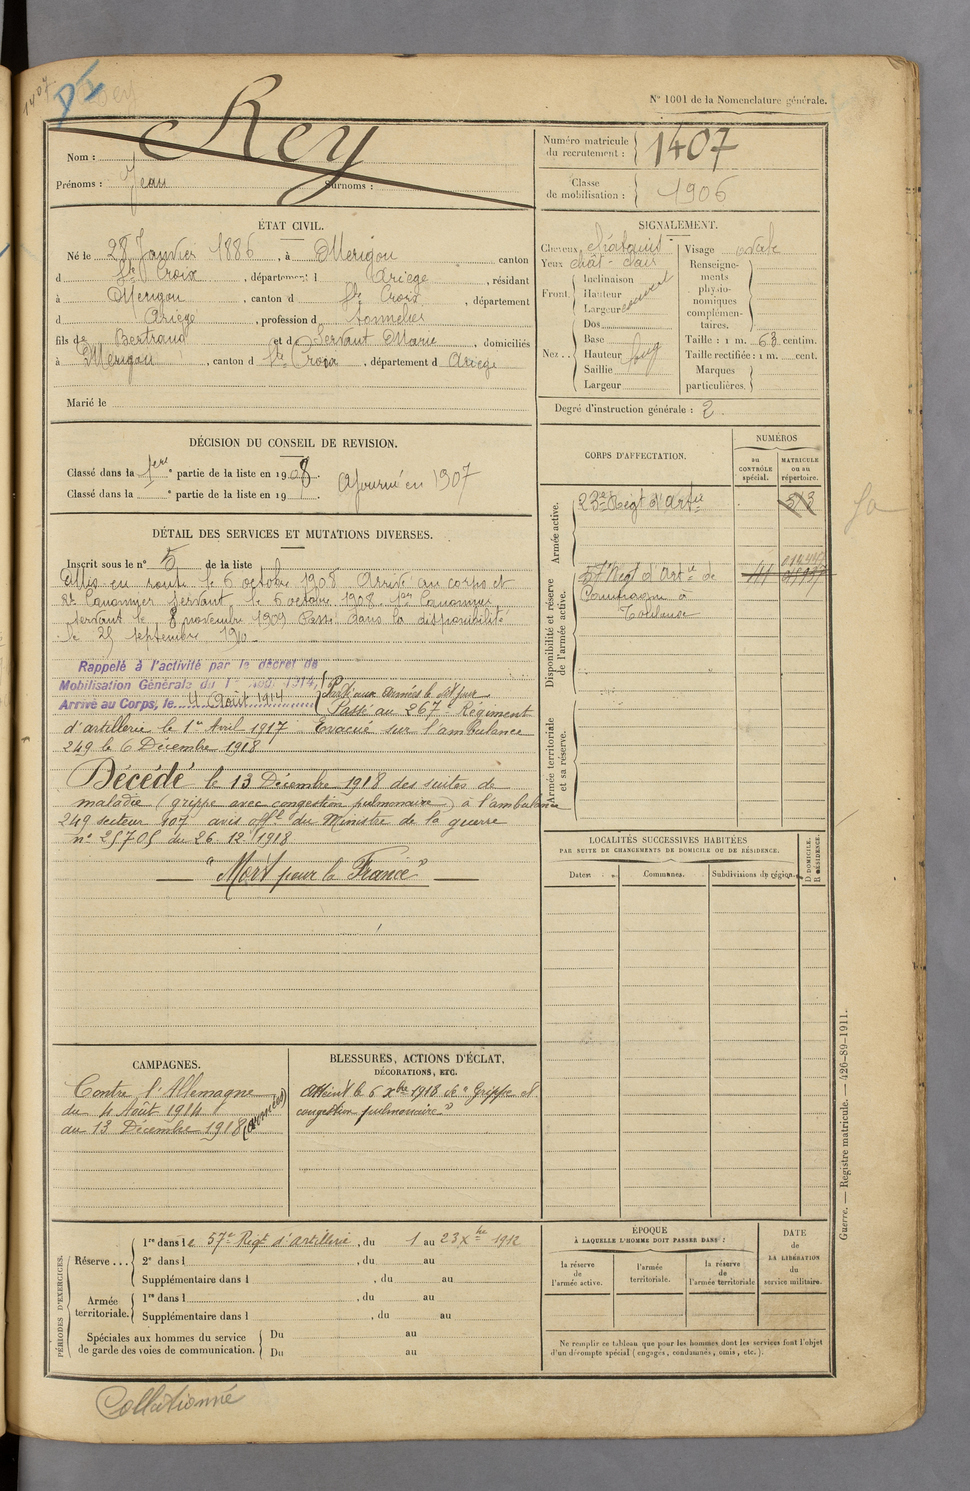 1407
N° 1001 de la Nomenclature générale.
Nom : Rey
Prénoms : Jean Surnoms :
Numéro matricule du recrutement : 1407
Classe de mobilisation : 1906
ÉTAT CIVIL.
Né le 28 Janvier 1886, à Merigon canton
d Ste Croix, département d Ariège, résidant
à Merigon, canton d Ste Croix, département
d Ariège, profession d tonnelier
fils de Bertrand et d Servant Marie, domiciliés
à Merigon, canton d Ste Croix, département d Ariège
Marié le
SIGNALEMENT.
Cheveux châtains Visage ovale
Yeux chât-clair
Front. Inclinaison
Hauteur
Largeur
Nez.. Dos
Base
Hauteur
Saillie
Largeur
Renseignements physionomiques complémentaires.
Taille : 1 m. 63 centim.
Taille rectifiée : 1 m. cent.
Marques particulières.
Degré d'instruction générale : 2.
DÉCISION DU CONSEIL DE REVISION.
Classé dans la 1ere partie de la liste en 1908.
Classé dans la e partie de la liste en 19 .
Ajourné en 1907
DÉTAIL DES SERVICES ET MUTATIONS DIVERSES.
Inscrit sous le n° 5 de la liste
Mis en route le 6 octobre 1908 Arrivé au corps et
2e Canonnier servant le 6 octobre 1908. 1er Canonnier
servant le 8 novembre 1909 Passé dans la disponibilité
le 25 septembre 1910
Rappelé à l'activité par le décret de
Mobilisation Générale du 1er Août 1914,
Arrivé au Corps, le 4 Août 1914
aux armées le dit jour
Passé au 267e Régiment
d'artillerie le 1er Avril 1917 Evacué sur l'ambulance
249 le 6 Décembre 1918
Décédé le 13 Décembre 1918 des suites de
maladie (grippe avec congestion pulmonaire) à l'ambulance
249 secteur 107 avis offel du Ministre de la guerre
n° 25705 du 26.12.1918
"Mort pour la France"
CORPS D'AFFECTATION.
NUMÉROS
au CONTRÔLE spécial.
MATRICULE ou au répertoire.
Armée active.
23e Regt d'Artie
Disponibilité et réserve de l'armée active.
57e Regt d'Artie de
Campagne à
Toulouse
Armée territoriale et sa réserve.
LOCALITÉS SUCCESSIVES HABITÉES
PAR SUITE DE CHANGEMENTS DE DOMICILE OU DE RÉSIDENCE.
Dates Communes. Subdivisions de région.
D. DOMICILE.
R. RÉSIDENCE.
CAMPAGNES.
Contre l'Allemagne
du 4 Août 1914
au 13 Décembre 1918 (armées)
BLESSURES, ACTIONS D'ÉCLAT,
DÉCORATIONS, ETC.
Atteint le 6 Xbre 1918 de "Grippe et
congestion pulmonaire"
PÉRIODES D'EXERCICES.
Réserve... 1re dans le 57e Regt d'artillerie, du 1 au 23 Xbre 1912
2e dans l , du au
Supplémentaire dans l , du au
Armée territoriale. 1re dans l , du au
Supplémentaire dans l , du au
Spéciales aux hommes du service de garde des voies de communication. Du au
Du au
ÉPOQUE
À LAQUELLE L'HOMME DOIT PASSER DANS :
la réserve de l'armée active.
l'armée territoriale.
la réserve de l'armée territoriale
DATE de LA LIBÉRATION du service militaire.
Ne remplir ce tableau que pour les hommes dont les services font l'objet
d'un décompte spécial (engagés, condamnés, omis, etc.).
Guerre. — Registre matricule. — 426-89-1911.
Collationné